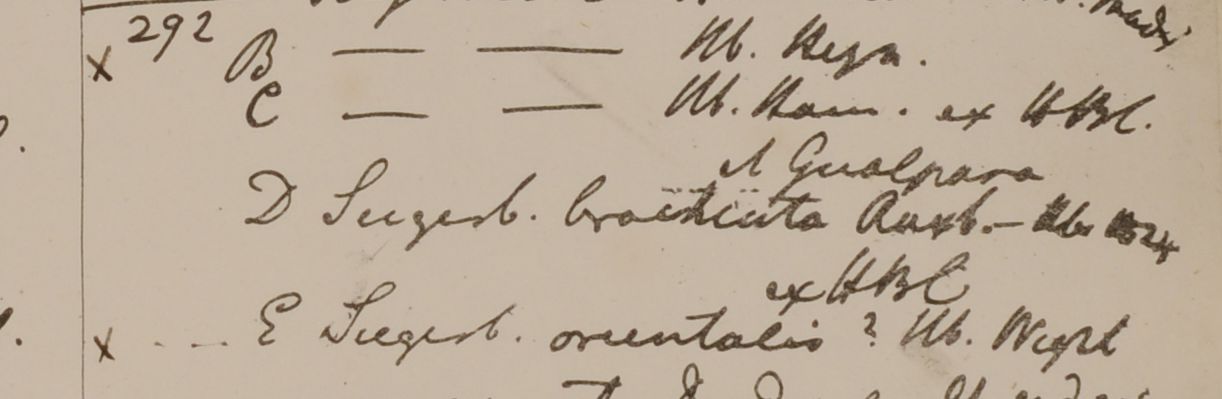 x 292 B — — Hb. Heyn.
C — — Hb. Ham. ex HBC.
et Gualpara
D Siegesb. bracteata Roxb. – Hb. Roxb.
ex HBC
x E Siegesb. orientalis? Hb. Wight